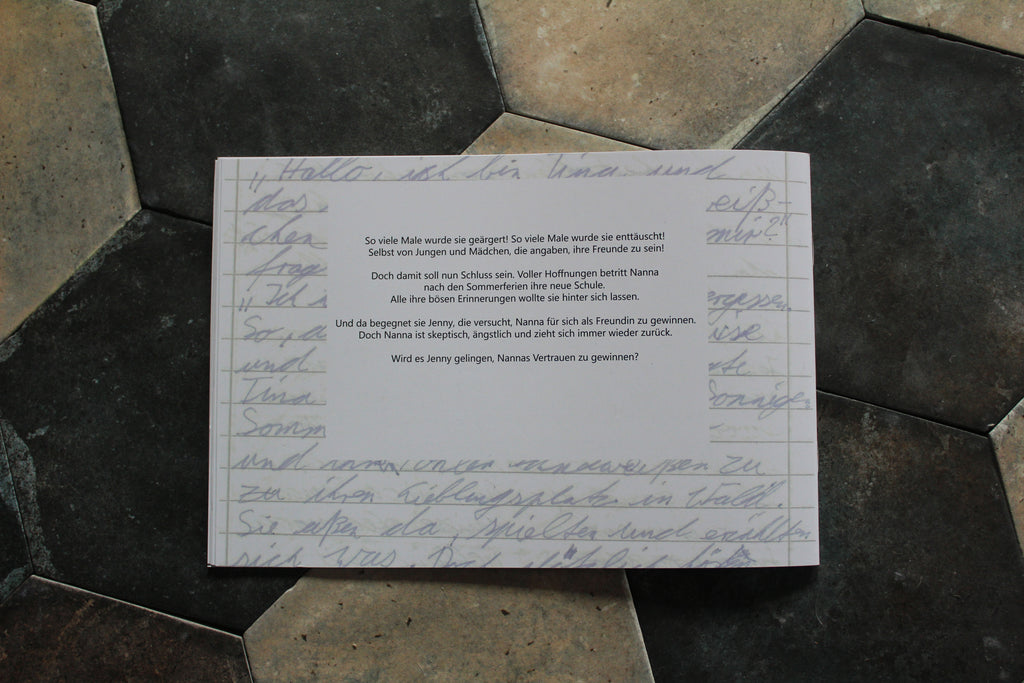 „Hallo, ich bin Tina und
das
eiß-
chen
mir?"
frage
„Ich
ergessen.
So, d
und
Tina
Sonnige
Somm
So viele Male wurde sie geärgert! So viele Male wurde sie enttäuscht!
Selbst von Jungen und Mädchen, die angaben, ihre Freunde zu sein!
Doch damit soll nun Schluss sein. Voller Hoffnungen betritt Nanna
nach den Sommerferien ihre neue Schule.
Alle ihre bösen Erinnerungen wollte sie hinter sich lassen.
Und da begegnet sie Jenny, die versucht, Nanna für sich als Freundin zu gewinnen.
Doch Nanna ist skeptisch, ängstlich und zieht sich immer wieder zurück.
Wird es Jenny gelingen, Nannas Vertrauen zu gewinnen?
und zu
zu ihren Lieblingsplatz in Wald.
Sie aßen da, spielten und erzählten
sich was. Doch plötzlich